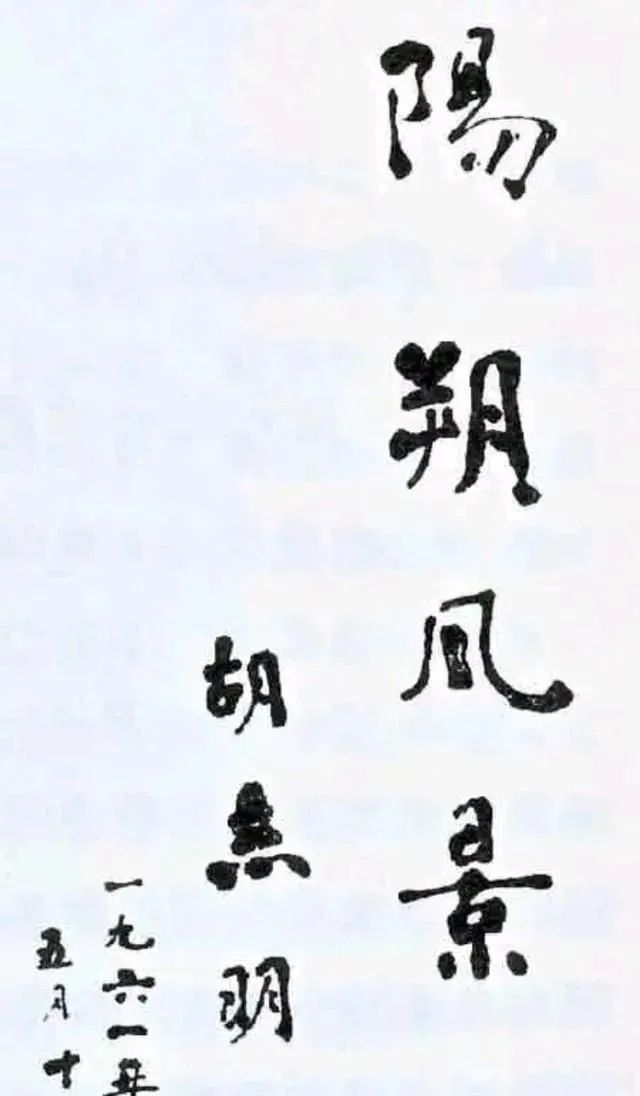 陽朔風景
胡志明
一九六一年
五月十